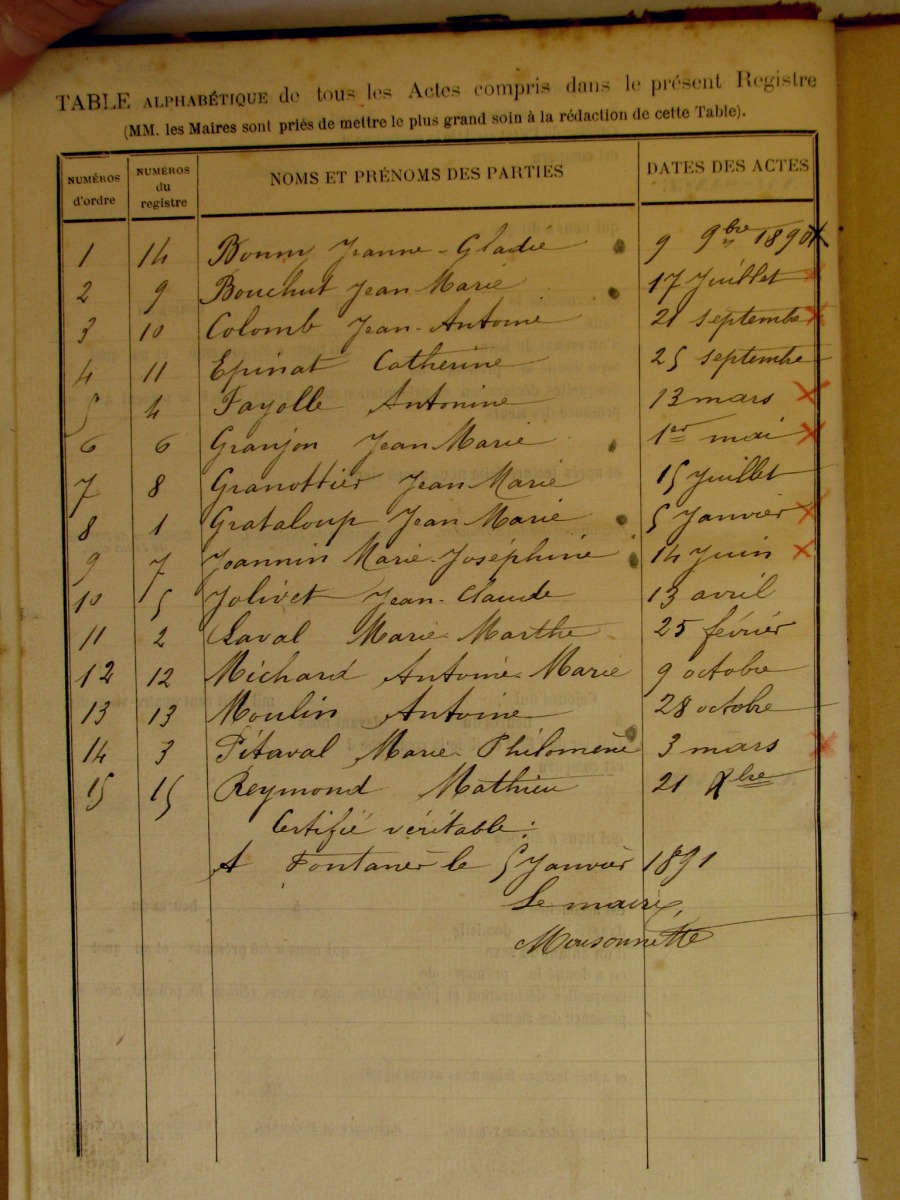 TABLE ALPHABÉTIQUE de tous les Actes compris dans le présent Registre
(MM. les Maires sont priés de mettre le plus grand soin à la rédaction de cette Table).
NUMÉROS d'ordre NUMÉROS du registre NOMS ET PRÉNOMS DES PARTIES DATES DES ACTES
1 14 Bonny Jeanne-Gladie 9 9bre 1890
2 9 Bouchut Jean Marie 17 Juillet
3 10 Colomb Jean-Antoine 21 septembre
4 11 Epinat Catherine 25 septembre
5 4 Fayolle Antonine 13 mars
6 6 Granjon Jean Marie 1er mai
7 8 Granottier Jean Marie 15 Juillet
8 1 Grataloup Jean Marie 5 Janvier
9 7 Joannin Marie-Joséphine 14 Juin
10 5 Jolivet Jean-Claude 13 avril
11 2 Laval Marie-Marthe 25 février
12 12 Michard Antoine-Marie 9 octobre
13 13 Moulin Antoine 28 octobre
14 3 Pitaval Marie-Philomène 3 mars
15 15 Reymond Mathieu 21 Xbre
Certifié véritable:
A Fontanès le 5 Janvier 1891
Le maire,